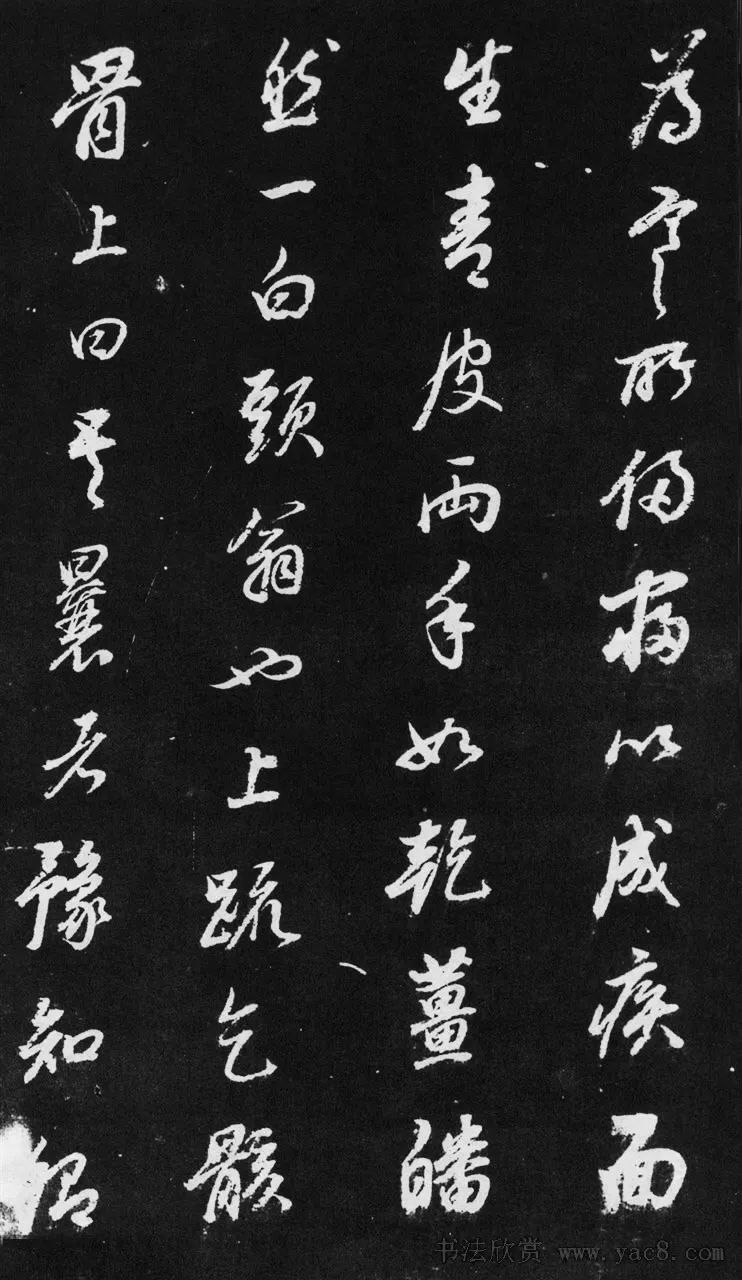 为寒所傷竊以成疾面
生青皮兩手如乾薑皤
然一白頭翁也上疏乞骸
骨上曰吾曩者豫知卿
书法欣赏 www.yac8.com